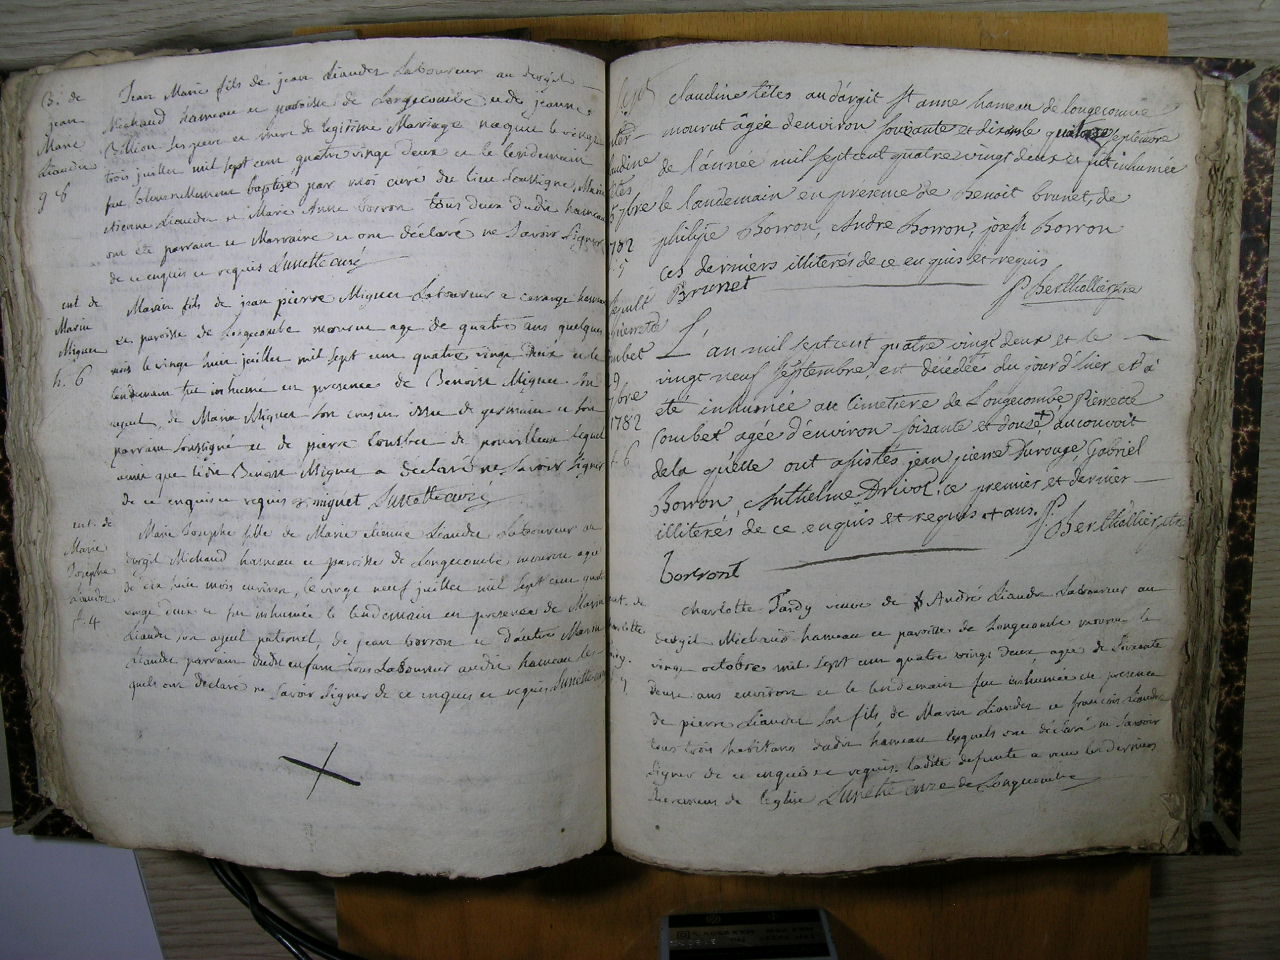 B. de
jean
Marie
Liauder
g 6
Jean Marie fils de jean Liauder Laboureur au dergit
Michaud hameau et paroisse de Longecombe et de jeanne
Billion ses pere et mere de legitime Mariage naquit le vingt
trois juillet mil sept cent quatre vingt deux et le lendemain
fut solemnellement baptisé par moi curé du lieu soussigné, Marie
etienne Liauder et Marie Anne borron tous deux dudit hameau
ont été parrain et Marraine et ont déclaré ne savoir signer
de ce enquis et requis Lunette curé
ent de
Marin
Miguet
h. 6
Marin fils de jean pierre Miguet Laboureur a hameau
et paroisse de Longecombe mourut agé de quatre ans quelques
mois le vingt huit juillet mil sept cent quatre vingt deux et le
lendemain fut inhumé en presence de Benoit Miguet son
ayeul, de Marin Miguet son cousin issu de germain et son
parrain soussigné et de pierre lequel
ainsi que ledit Benoit Miguet a déclaré ne savoir signer
de ce enquis et requis miguet Lunette curé
ent. de
Marie
Josephe
Liauder
f. 4
Marie Josephe fille de Marie etienne Liauder Laboureur au
dergit Michaud hameau et paroisse de Longecombe mourut agée
de dix huit mois environ, le vingt neuf juillet mil sept cent quatre
vingt deux et fut inhumée le lendemain en presence de Marin
Liauder son ayeul paternel, de jean borron et d'autre Marin
Liauder parrain dudit enfant tous Laboureur audit hameau les-
quels ont déclaré ne savoir signer de ce enquis et requis Lunette curé
claudine têtes au dargit St anne hameau de longecombe
mourut âgée d'environ soixante et dix le quatorze septembre
de l'année mil sept cent quatre vingt deux et fut inhumée
7bre le landemain en presence de Benoit brunet, de
1782
philipe Borron, Andre Borron, joseph Borron
ces derniers illiterés de ce enquis et requis
Brunet
P. Berthollier
1782
L'an mil sept cent quatre vingt deux et le
vingt neuf septembre, est décédée du jour d'hier et a
été inhumée au cimetiere de Longecombe Pierrette
Combet agée d'environ soixante et douse + au convoit
de la quelle ont assistés jean pierre Durouge Gabriel
Borron, Anthelme Drivot, ce premier et dernier
illiterés de ce enquis et requis + ans. P. Berthollier
Borront
ent. de
Charlotte Tardy veuve de André Liauder Laboureur au
dergit Michaud hameau et paroisse de Longecombe mourut le
vingt octobre mil sept cent quatre vingt deux, agée de soixante
douze ans environ et le lendemain fut inhumée en presence
de pierre Liauder son fils, de Marin Liauder et francois Liauder
tous trois habitans dudit hameau lesquels ont déclaré ne savoir
signer de ce enquis et requis. ladite defunte a reçu les derniers
de l'eglise Lunette curé de Longecombe